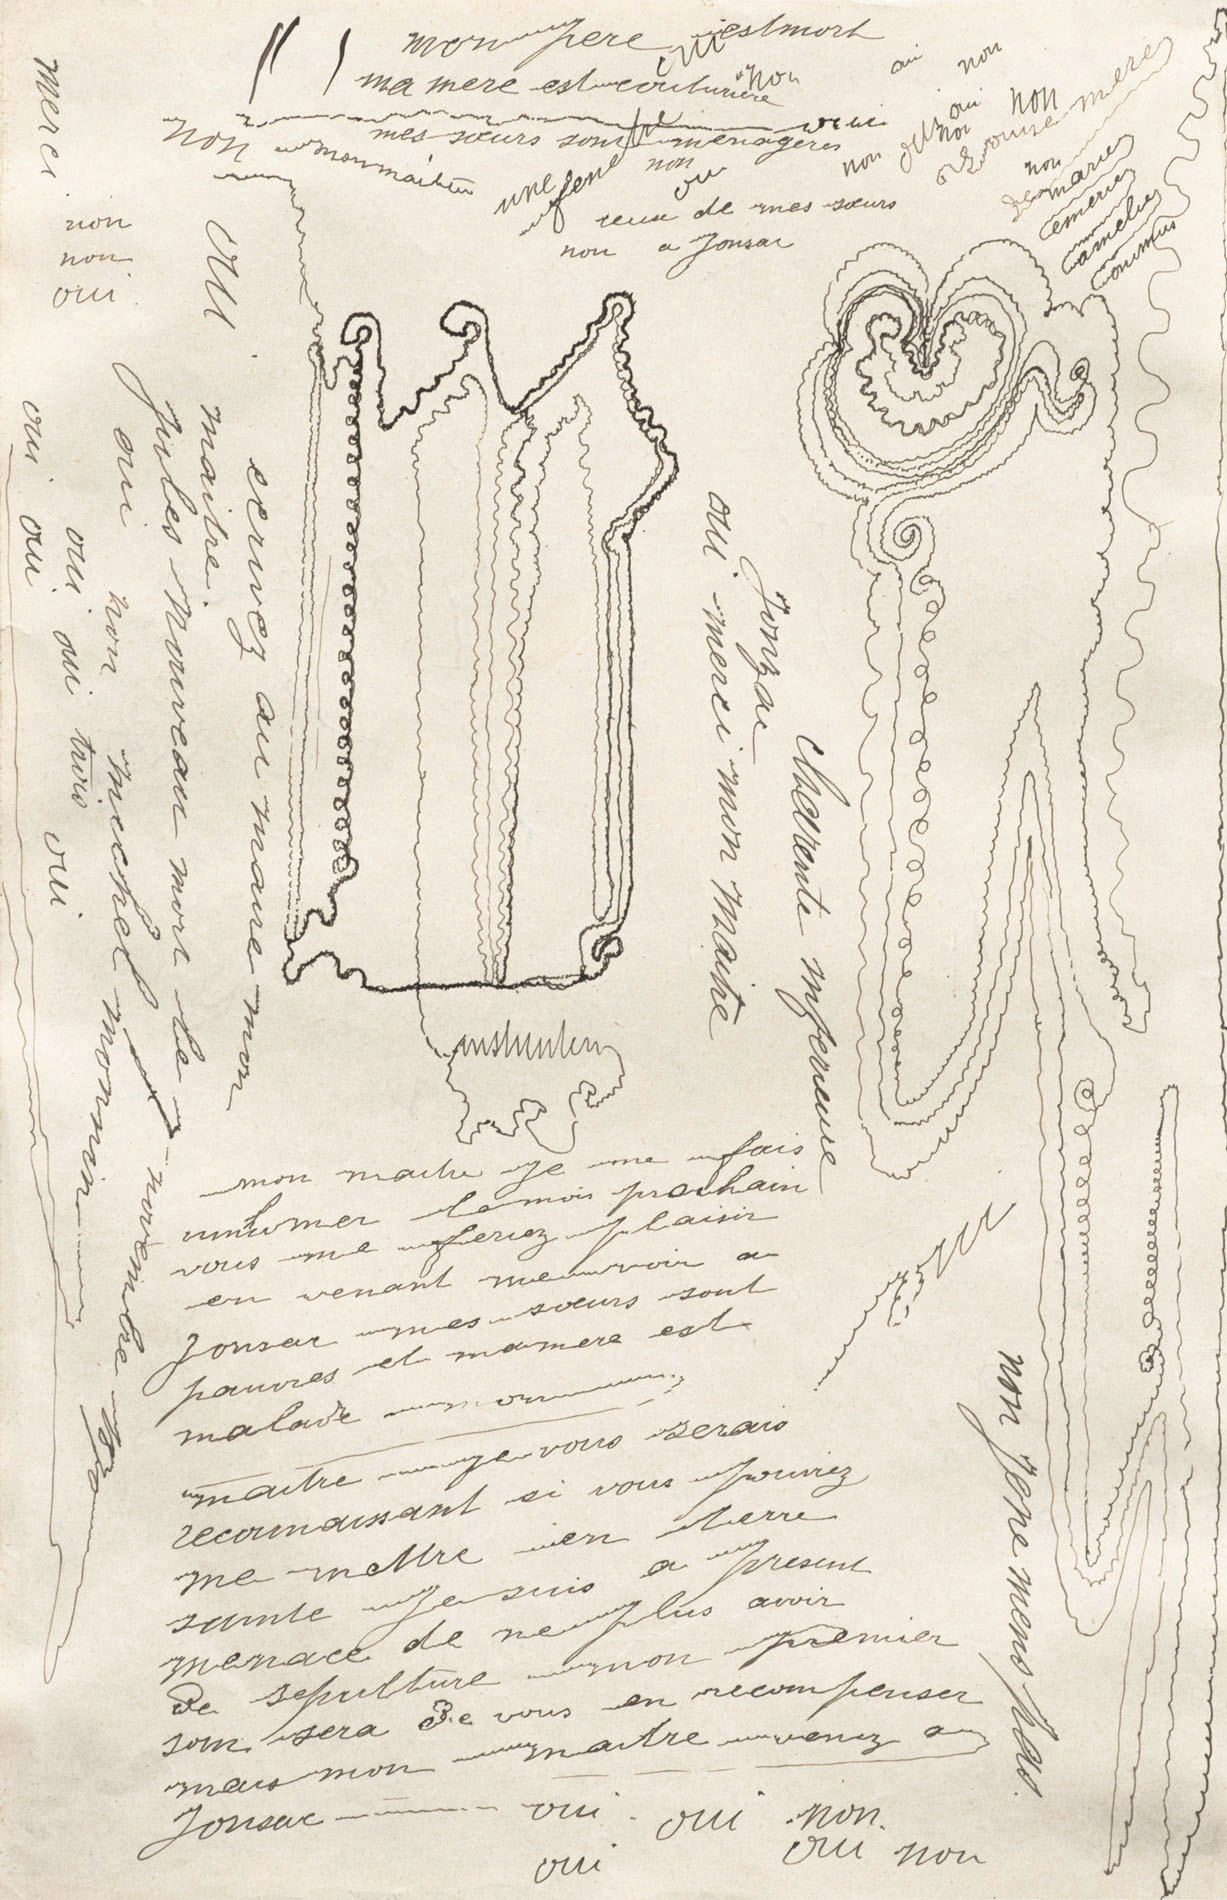 mon pere est mort
oui
ma mere est couturiere
non
mes sœurs sont menageres
oui
non
mon maitre
une
non
oui
ceux de mes sœurs
non a Jonsac
oui
non
non
oui
non
non
non
mere
non
marie
emerie
amelie
merci
non
non
oui
oui
ecrivez au maire mon
maitre.
Jules nouveau mort le
novembre
oui non michel monnin
oui oui oui trois oui
oui oui
Jonzac
Charente inferieure
oui. merci mon maitre
mon maitre je me fais
inhumer le mois prochain
vous me feriez plaisir
en venant me voir a
Jonsac mes sœurs sont
pauvres et ma mere est
malade mon
maitre je vous serais
reconnaissant si vous pouviez
me mettre en terre
sainte je suis a present
menace de ne plus avoir
de sepulture mon premier
soin sera de vous en recompenser
mais mon maitre venez a
Jonsac oui oui non.
oui oui non
non je ne mens pas